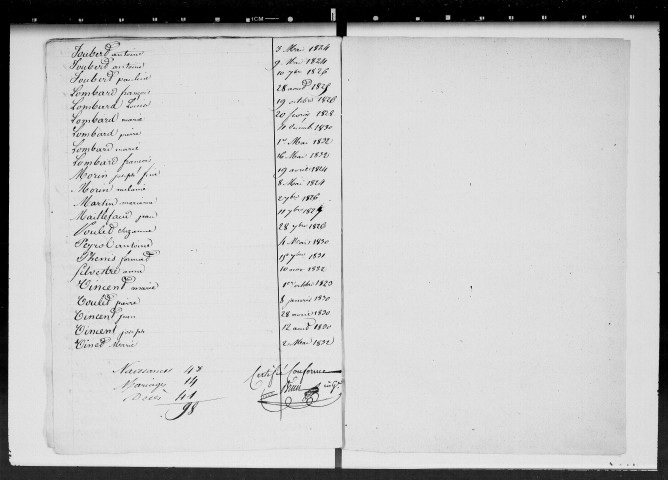 1CM
Joubert antoine 3 Mai 1824
Joubert antoine 9 1824
Joubert pauline 10 7bre 1826
Lombard françois 28 aoust 1825
Lombard Louise 19 octobre 1826
Lombard marie 20 fevrier 1828
Lombard pierre 1830
Lombard marie 1er Mai 1832
Lombard francois 16 Mai 1832
Morin joseph 19 avril 1824
Morin melanie 8 Mai 1824
Martin marianne 2 7bre 1826
Maillefaud jean 11 7bre
Suzanne 28 7bre 1826
Peyrol antoine 4 Mai 1830
15 7bre 1831
Silvestre anne 10 1832
Vincent marie 1er octobre 1823
pierre 8 janvier 1830
Vincent jean 28 1830
Vincent joseph 12 aout 1830
Marie 2 Mai 1832
Naissances 43
Mariages 14
Décès 41
98
Certifié Conforme